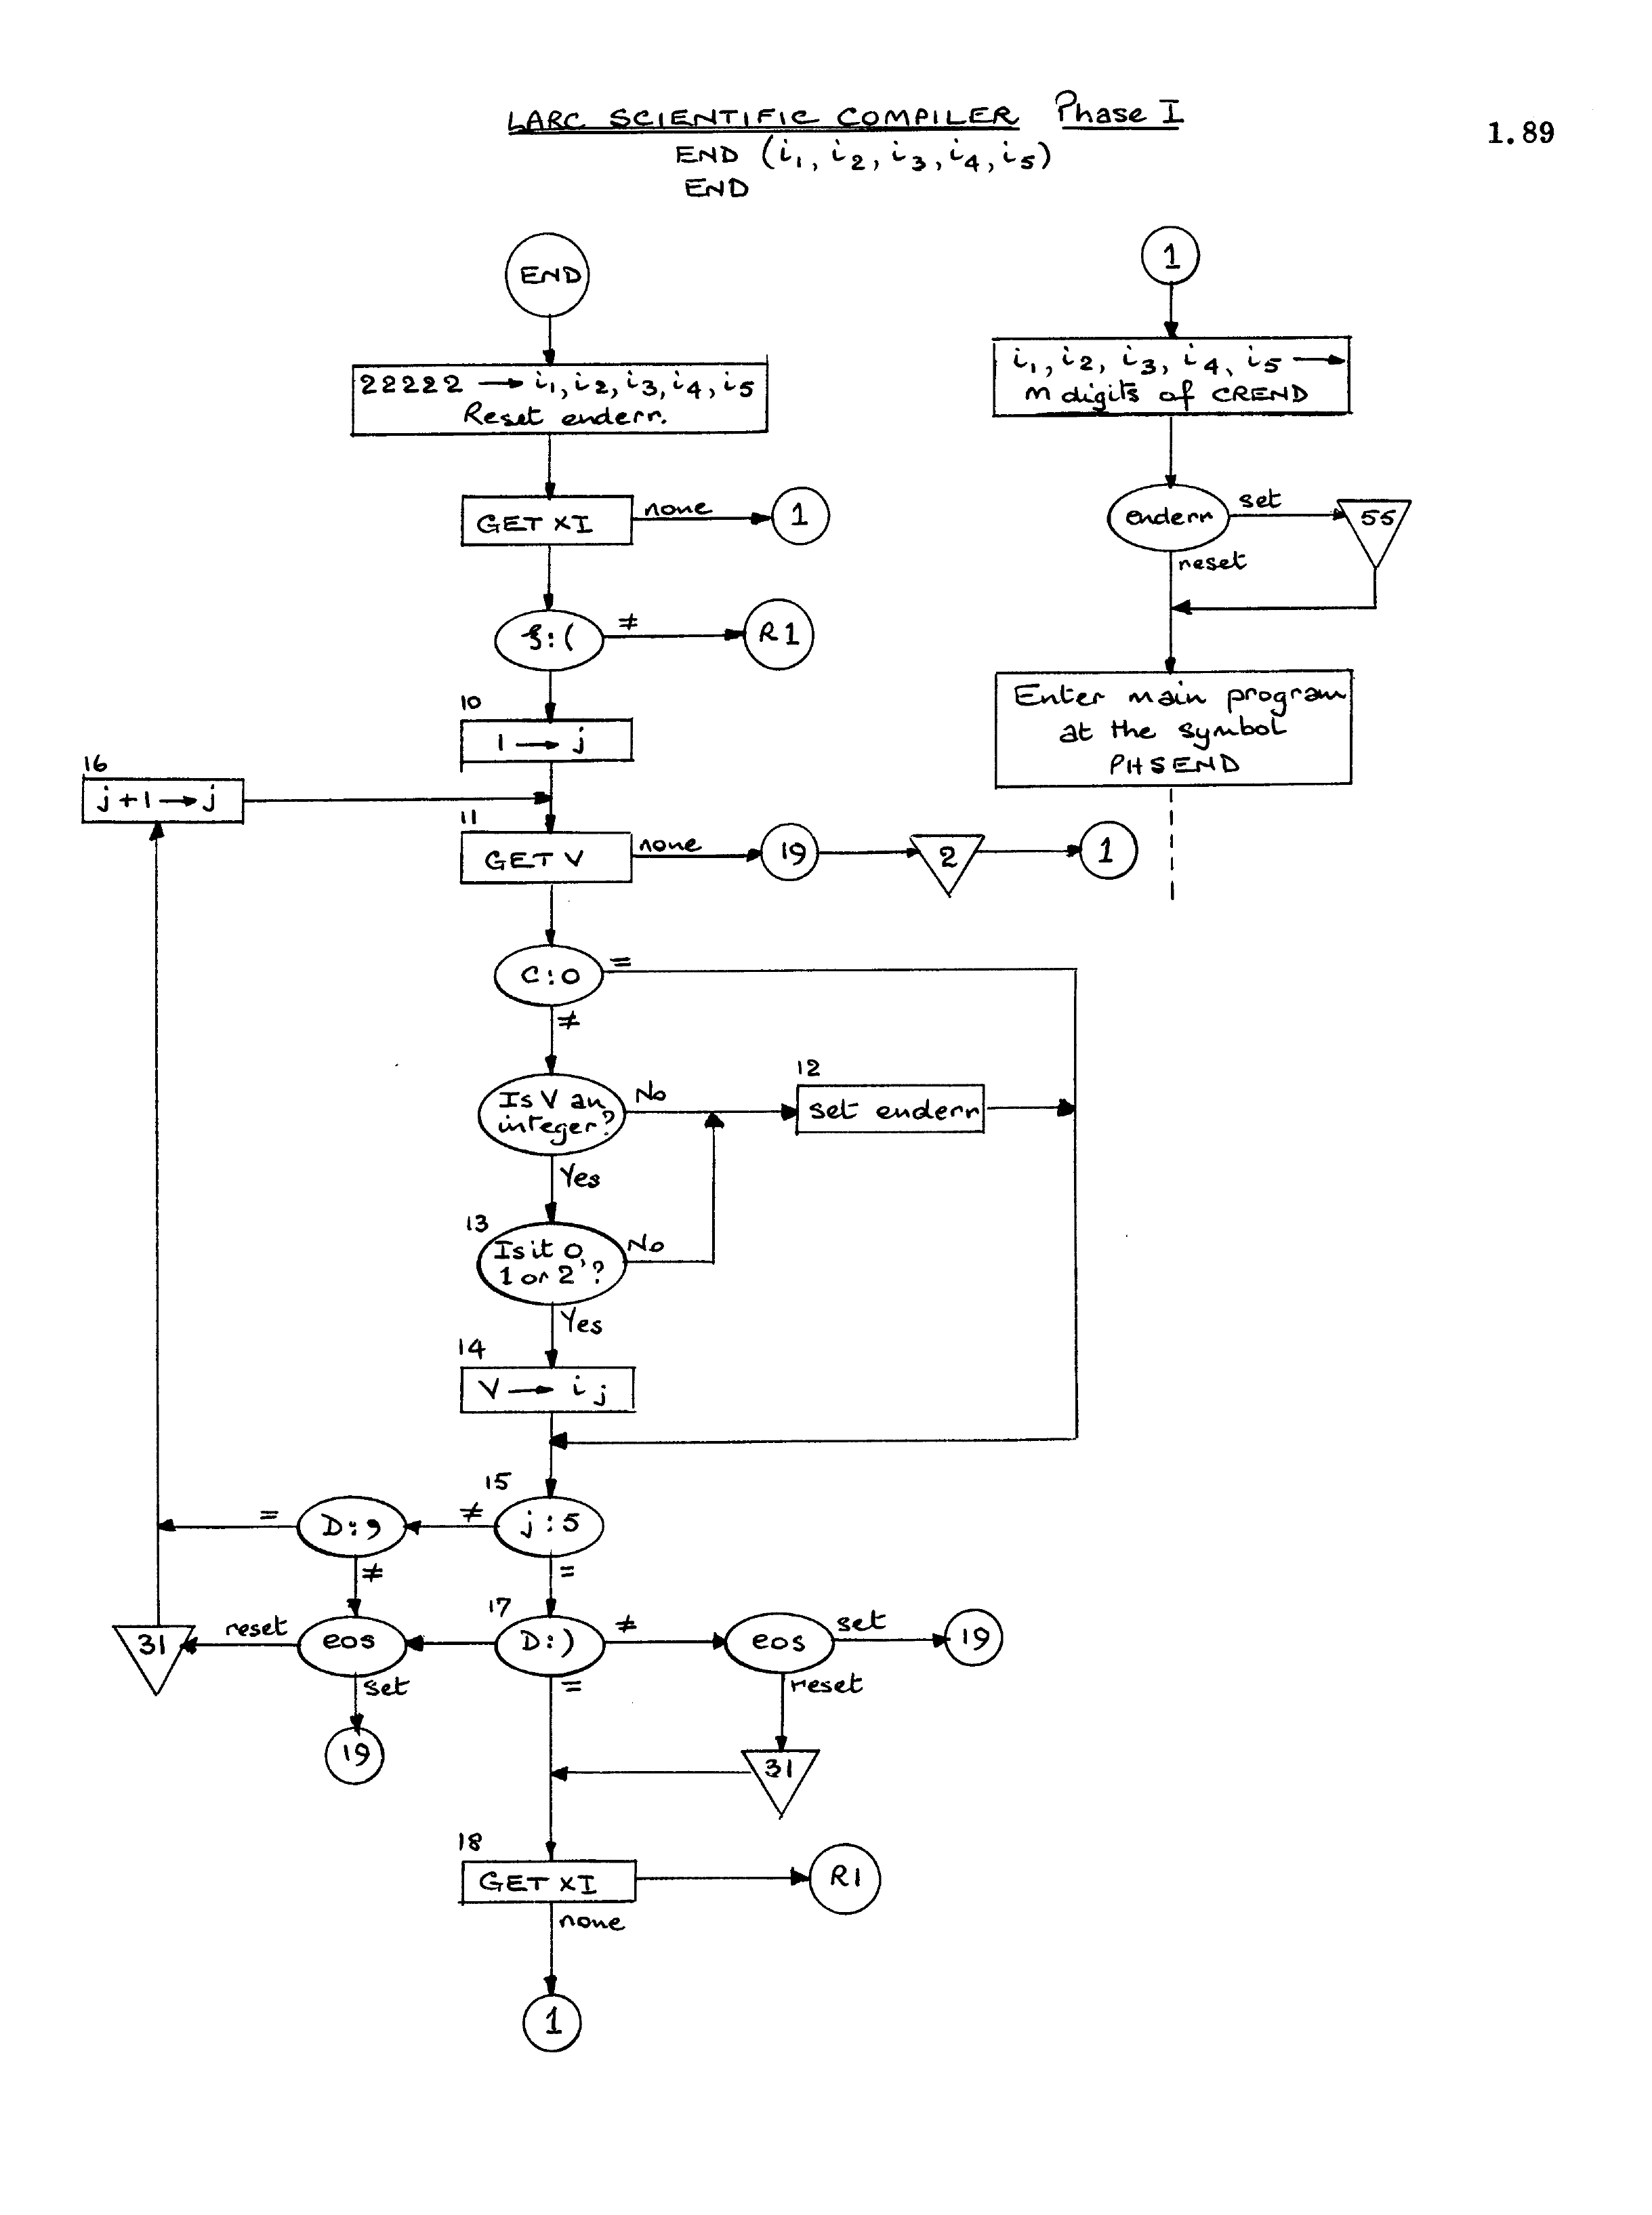 LARC SCIENTIFIC COMPILER Phase I
1.89
END (i₁, i₂, i₃, i₄, i₅)
END
END
22222 → i₁, i₂, i₃, i₄, i₅
Reset enderr.
GET XI
none
1
ξ:(
≠
R1
10
1 → j
16
j+1 → j
11
GET V
none
19
2
1
C:0
=
≠
Is V an
integer?
No
Yes
12
set enderr
13
Is it 0,
1 or 2?
No
Yes
14
V → i j
15
j:5
≠
=
D:,
=
≠
17
D:)
≠
=
eos
reset
set
31
19
eos
set
reset
19
31
18
GET XI
R1
none
1
1
i₁, i₂, i₃, i₄, i₅ →
m digits of CREND
enderr
set
55
reset
Enter main program
at the symbol
PHSEND